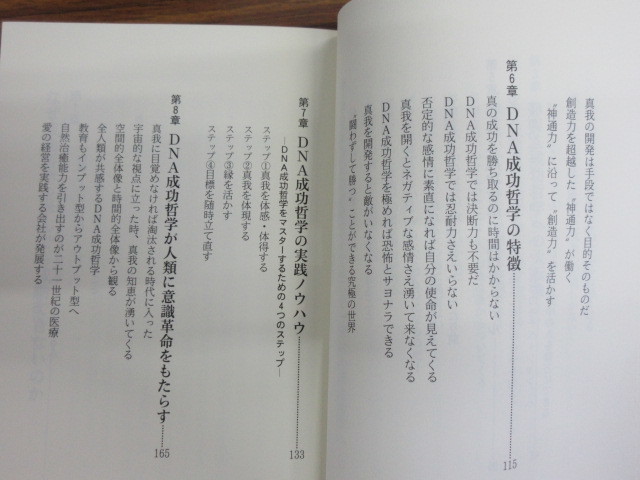 真我の開発は手段ではなく目的そのものだ
創造力を超越した〝神通力〟が働く
〝神通力〟に沿って〝創造力〟を活かす
第6章 DNA成功哲学の特徴 115
真の成功を勝ち取るのに時間はかからない
DNA成功哲学では決断力も不要だ
DNA成功哲学では忍耐力さえいらない
否定的な感情に素直になれば自分の使命が見えてくる
真我を開くとネガティブな感情さえ湧いて来なくなる
DNA成功哲学を極めれば恐怖とサヨナラできる
真我を開発すると敵がいなくなる
〝闘わずして勝つ〟ことができる究極の世界
第7章 DNA成功哲学の実践ノウハウ 133
―DNA成功哲学をマスターするための4つのステップ―
ステップ①真我を体感・体得する
ステップ②真我を体現する
ステップ③縁を活かす
ステップ④目標を随時立て直す
第8章 DNA成功哲学が人類に意識革命をもたらす 165
真我に目覚めなければ淘汰される時代に入った
宇宙的な視点に立った時、真我の知恵が湧いてくる
空間的全体像と時間的全体像から観る
全人類が共感するDNA成功哲学
教育もインプット型からアウトプット型へ
自然治癒能力を引き出すのが二十一世紀の医療
愛の経営を実践する会社が発展する